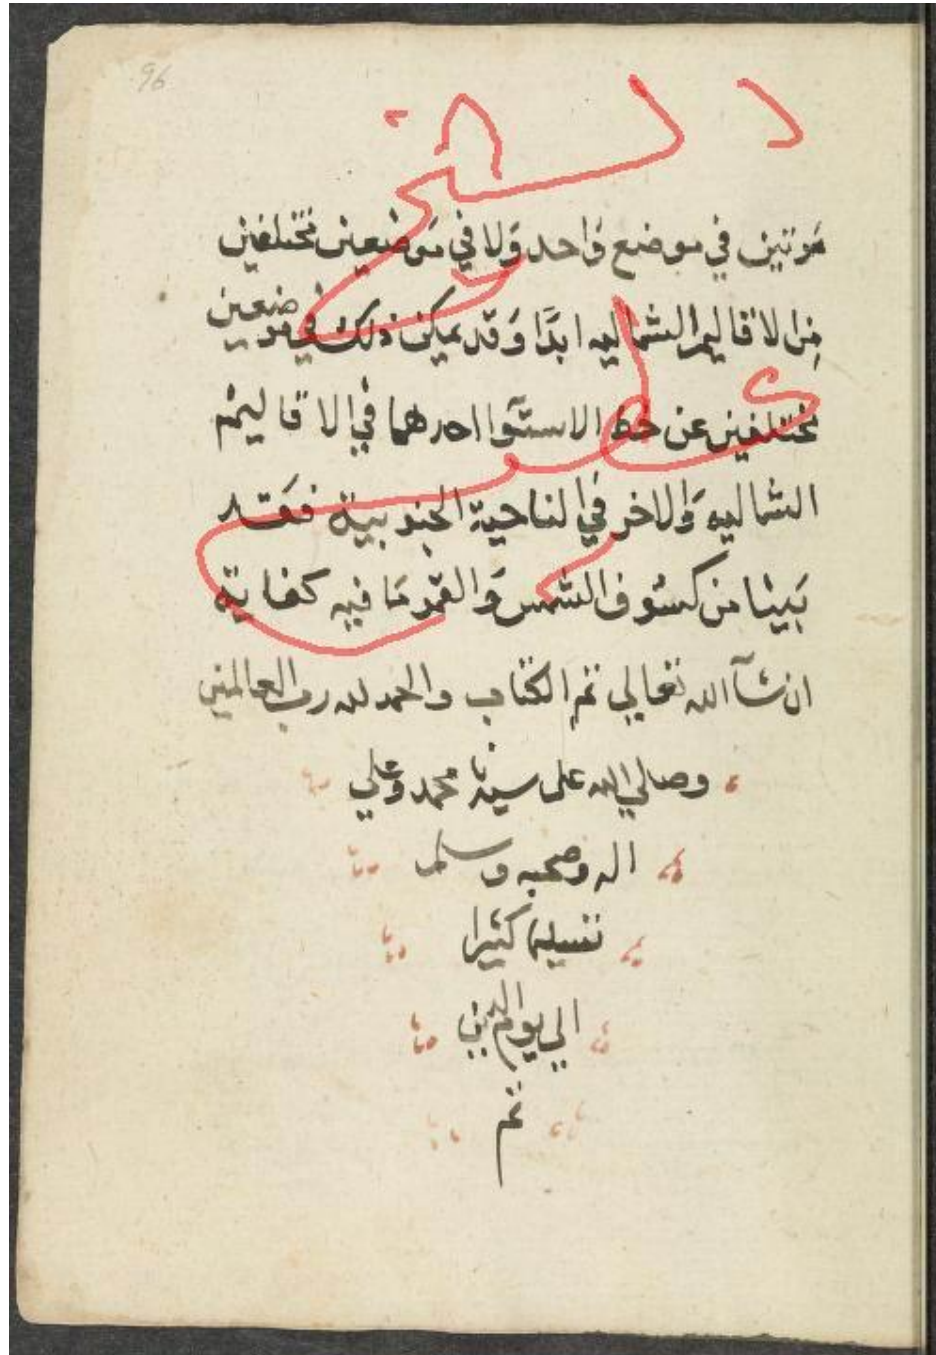 96
مرتين في موضع واحد ولا في موضعين مختلفين
من الاقاليم الشماليه ابدًا وقد يمكن ذلك في موضعين
مختلفين عن خط الاستوآ احدهما في الاقاليم
الشماليه والاخر في الناحية الجنوبية فقد
بينا من كسوف الشمس والقمر ما فيه كفاية
ان شآ الله تعالي تم الكتاب والحمد لله رب العالمين
وصلي الله علي سيدنا محمد وعلي
اله وصحبه وسلم
تسليما كثيرا
الي يوم الدين
تم